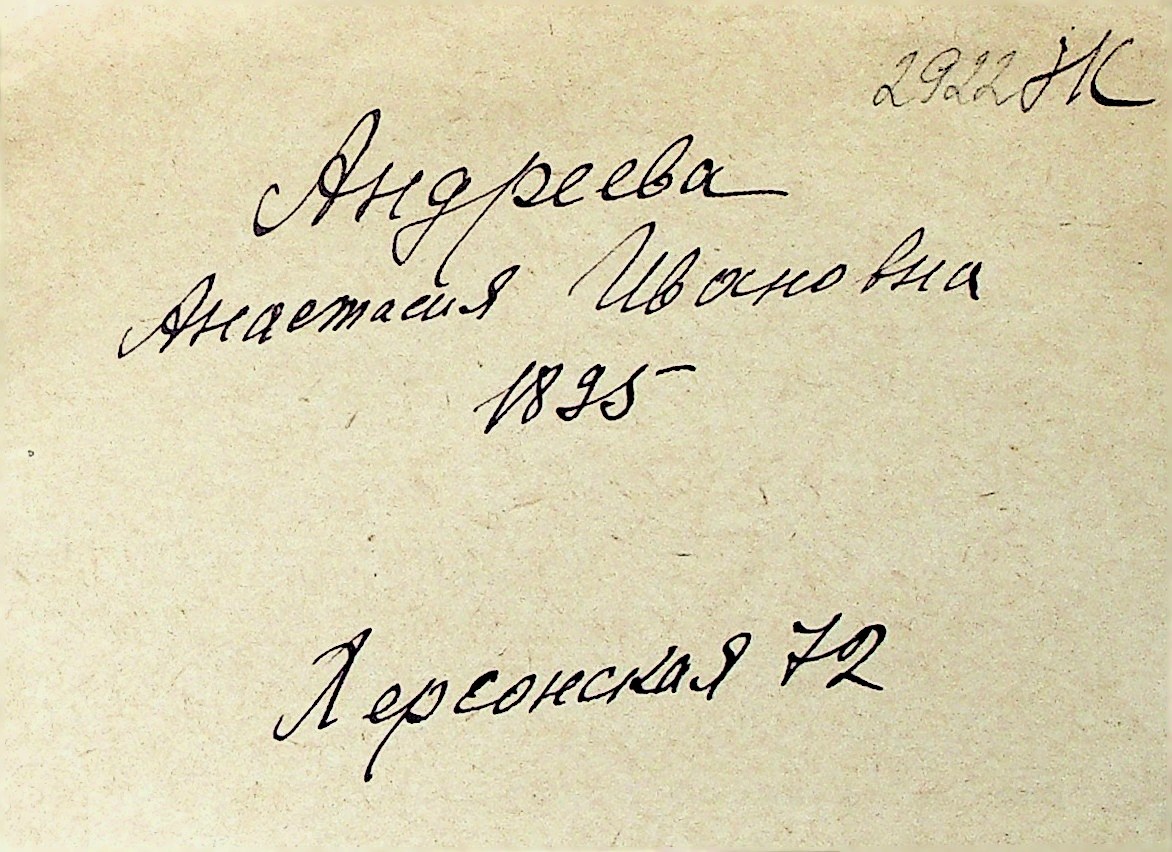 2922 Ж
Андреева
Анастасия Ивановна
1895
Херсонская 72